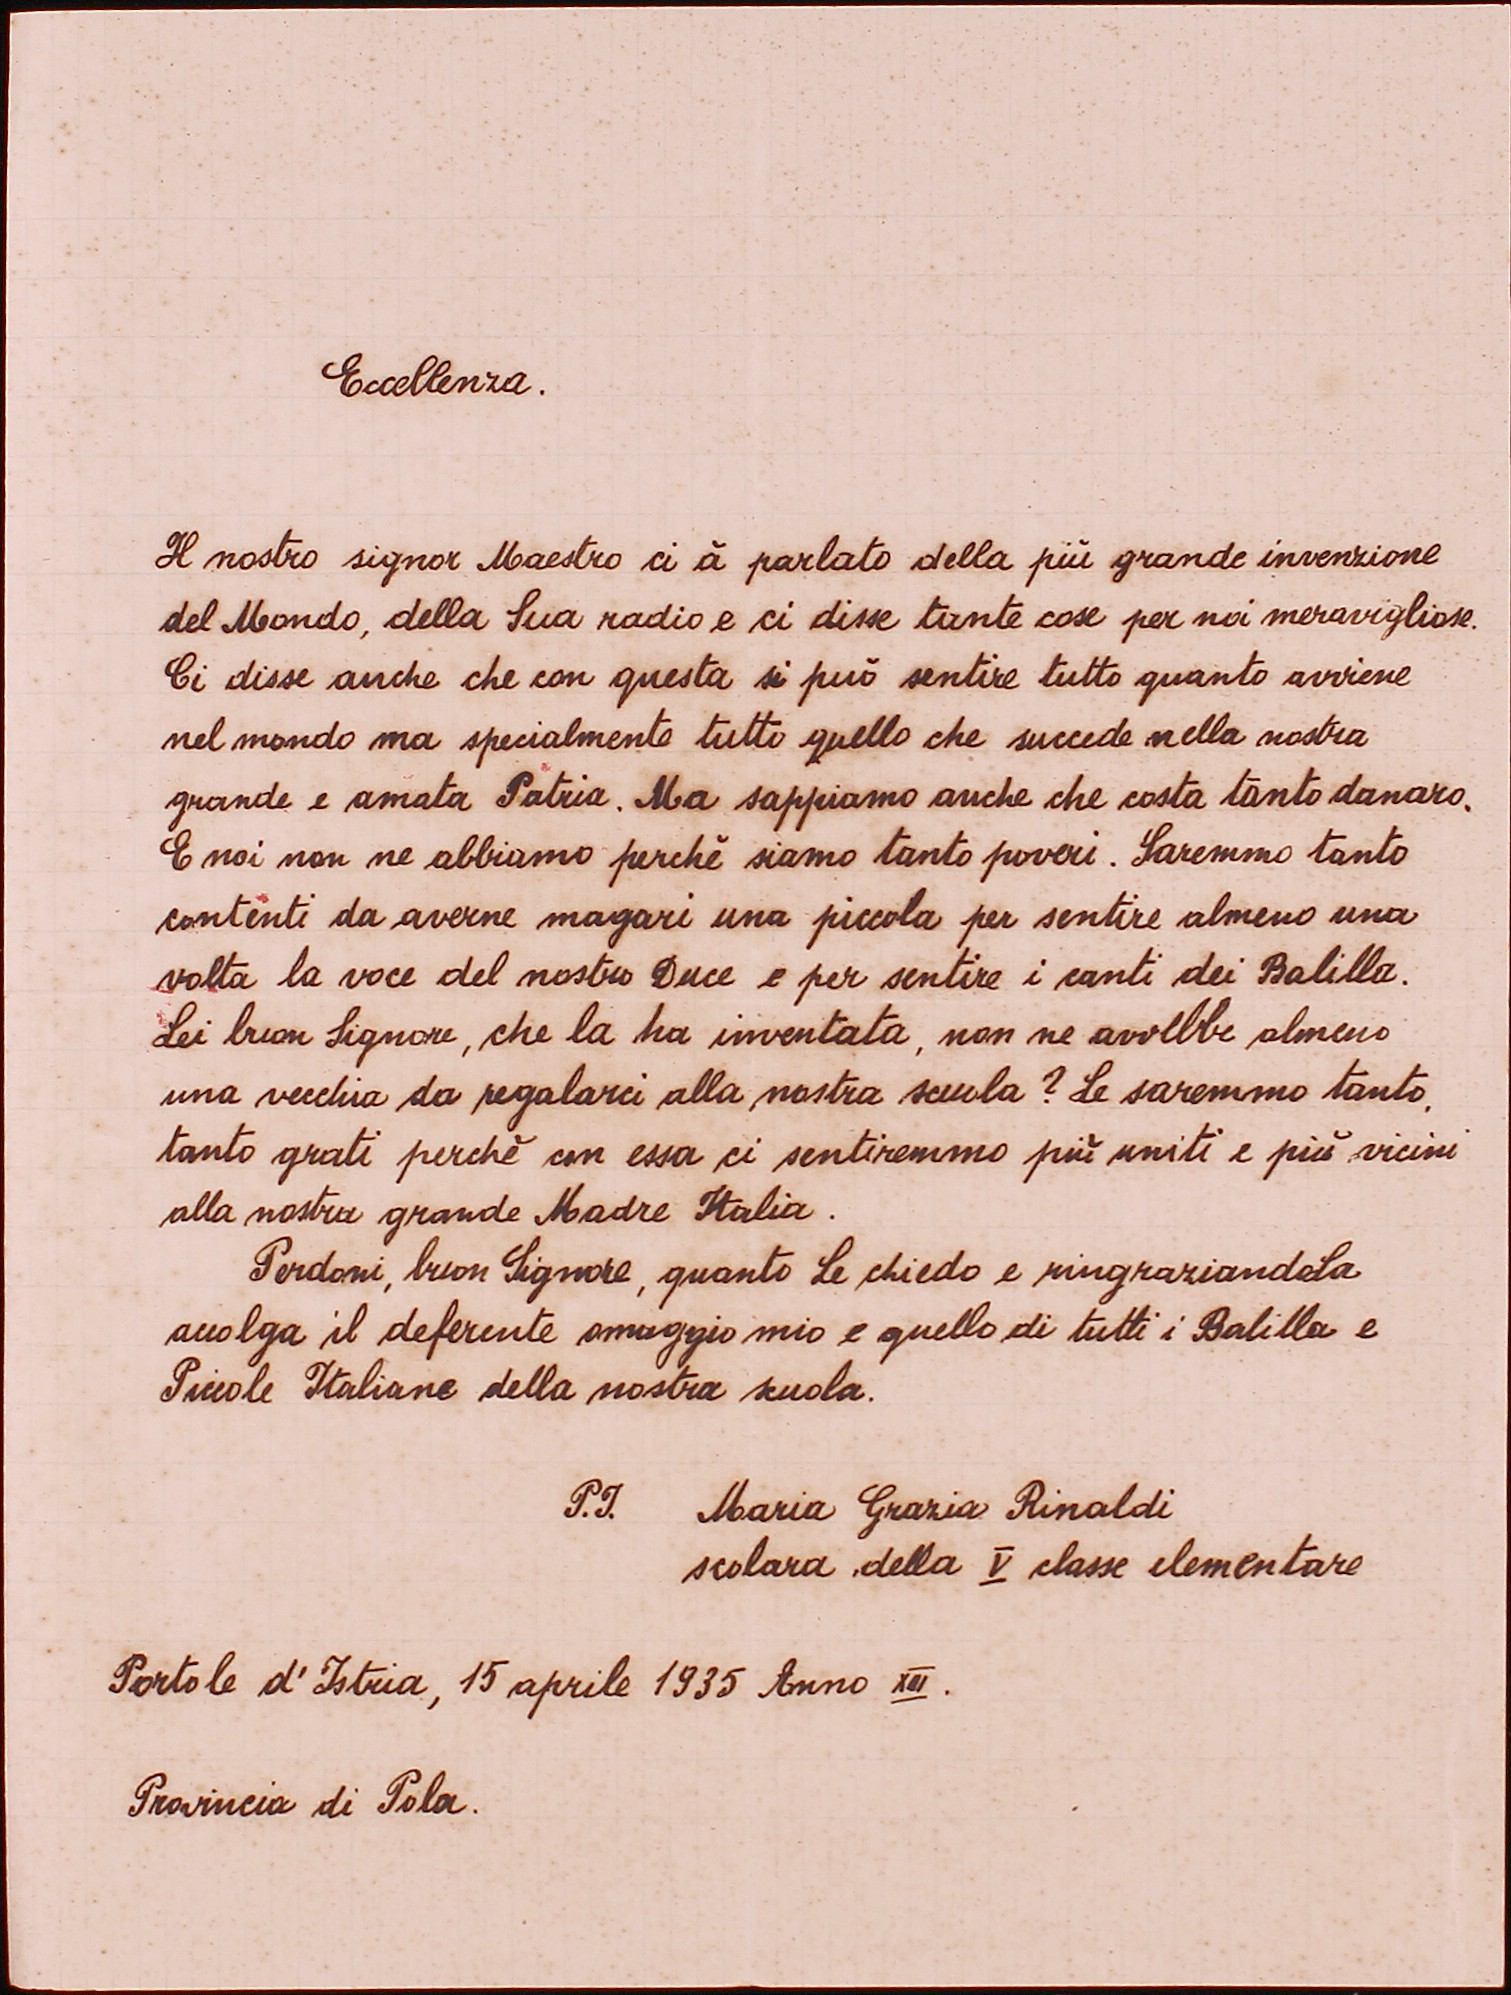 Eccellenza.
Il nostro signor Maestro ci à parlato della più grande invenzione
del Mondo, della Sua radio e ci disse tante cose per noi meravigliose.
Ci disse anche che con questa si può sentire tutto quanto avviene
nel mondo ma specialmente tutto quello che succede nella nostra
grande e amata Patria. Ma sappiamo anche che costa tanto danaro.
E noi non ne abbiamo perchè siamo tanto poveri. Saremmo tanto
contenti da averne magari una piccola per sentire almeno una
volta la voce del nostro Duce e per sentire i canti dei Balilla.
Lei buon Signore, che la ha inventata, non ne avrebbe almeno
una vecchia da regalarci alla nostra scuola? Le saremmo tanto,
tanto grati perchè con essa ci sentiremmo più uniti e più vicini
alla nostra grande Madre Italia.
Perdoni, buon Signore, quanto Le chiedo e ringraziandoLa
accolga il deferente omaggio mio e quello di tutti i Balilla e
Piccole Italiane della nostra scuola.
P.I. Maria Grazia Rinaldi
scolara della V classe elementare
Portole d'Istria, 15 aprile 1935 Anno XIII.
Provincia di Pola.